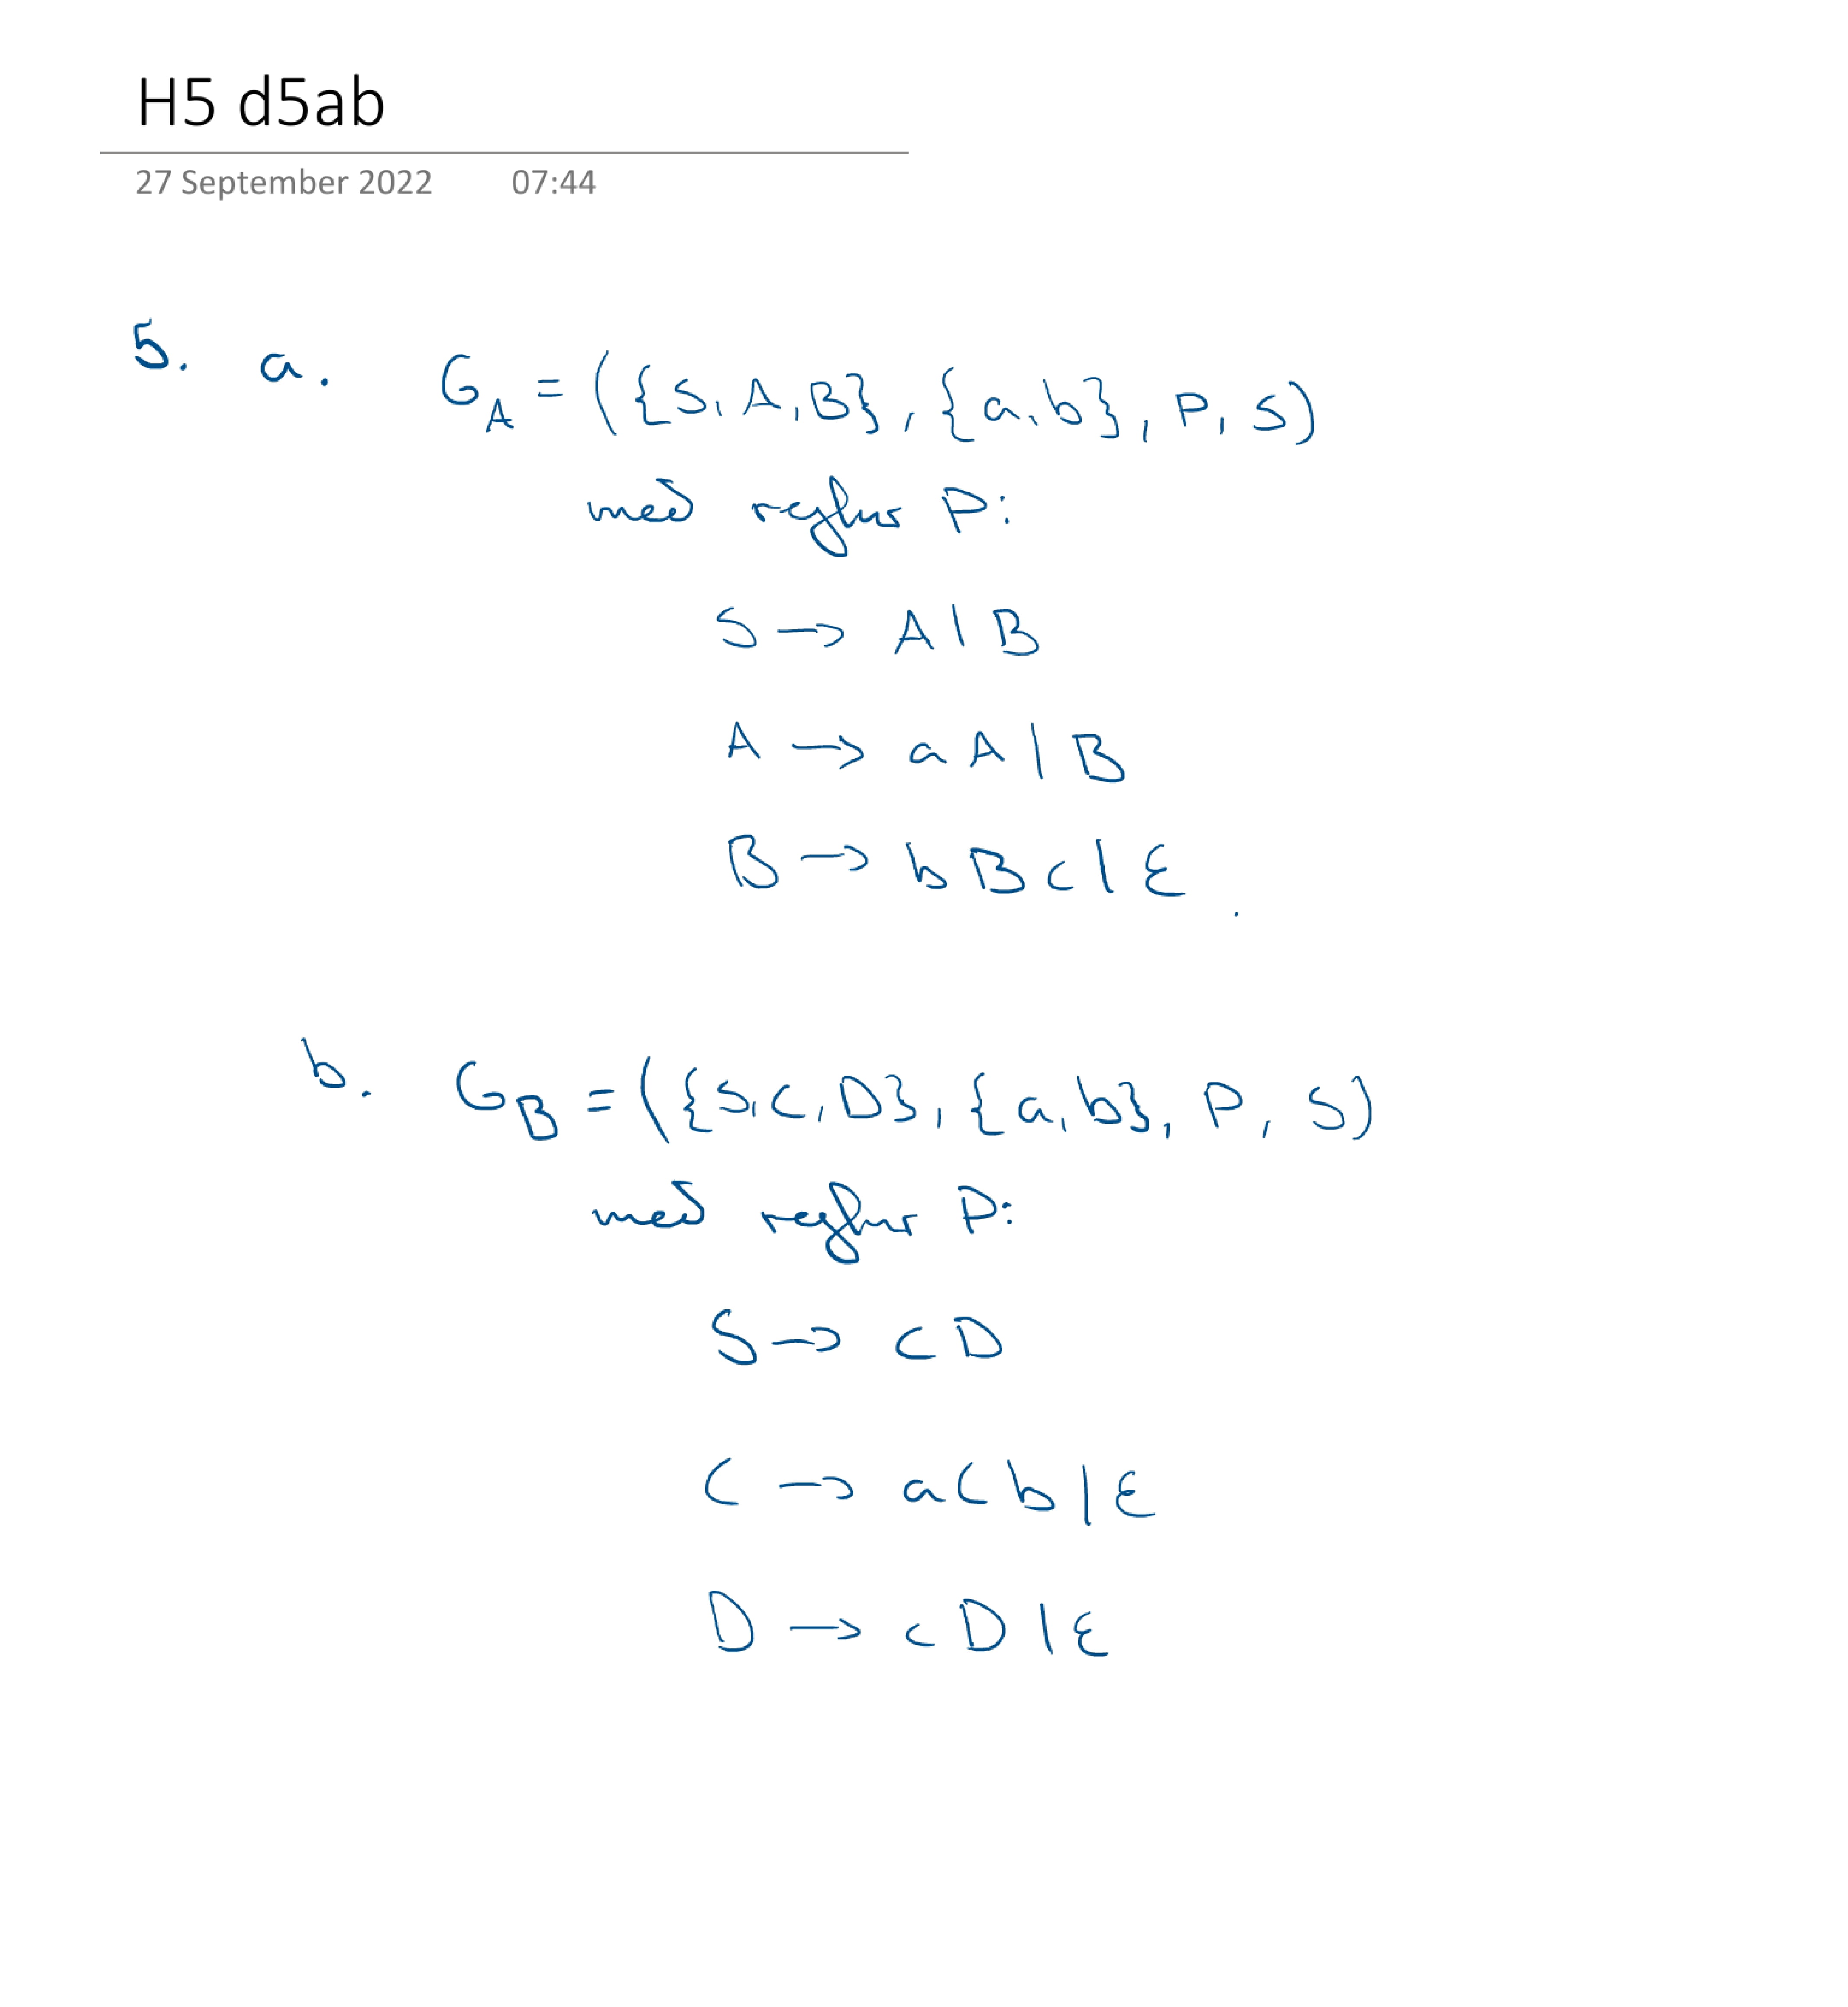 H5 d5ab
27 September 2022 07:44
5. a. G_A = ({S, A, B}, {a, b}, P, S)
með reglur P:
S → A | B
A → aA | B
B → bBc | ε.
b. G_B = ({S, C, D}, {a, b}, P, S)
með reglur P:
S → CD
C → aCb | ε
D → cD | ε